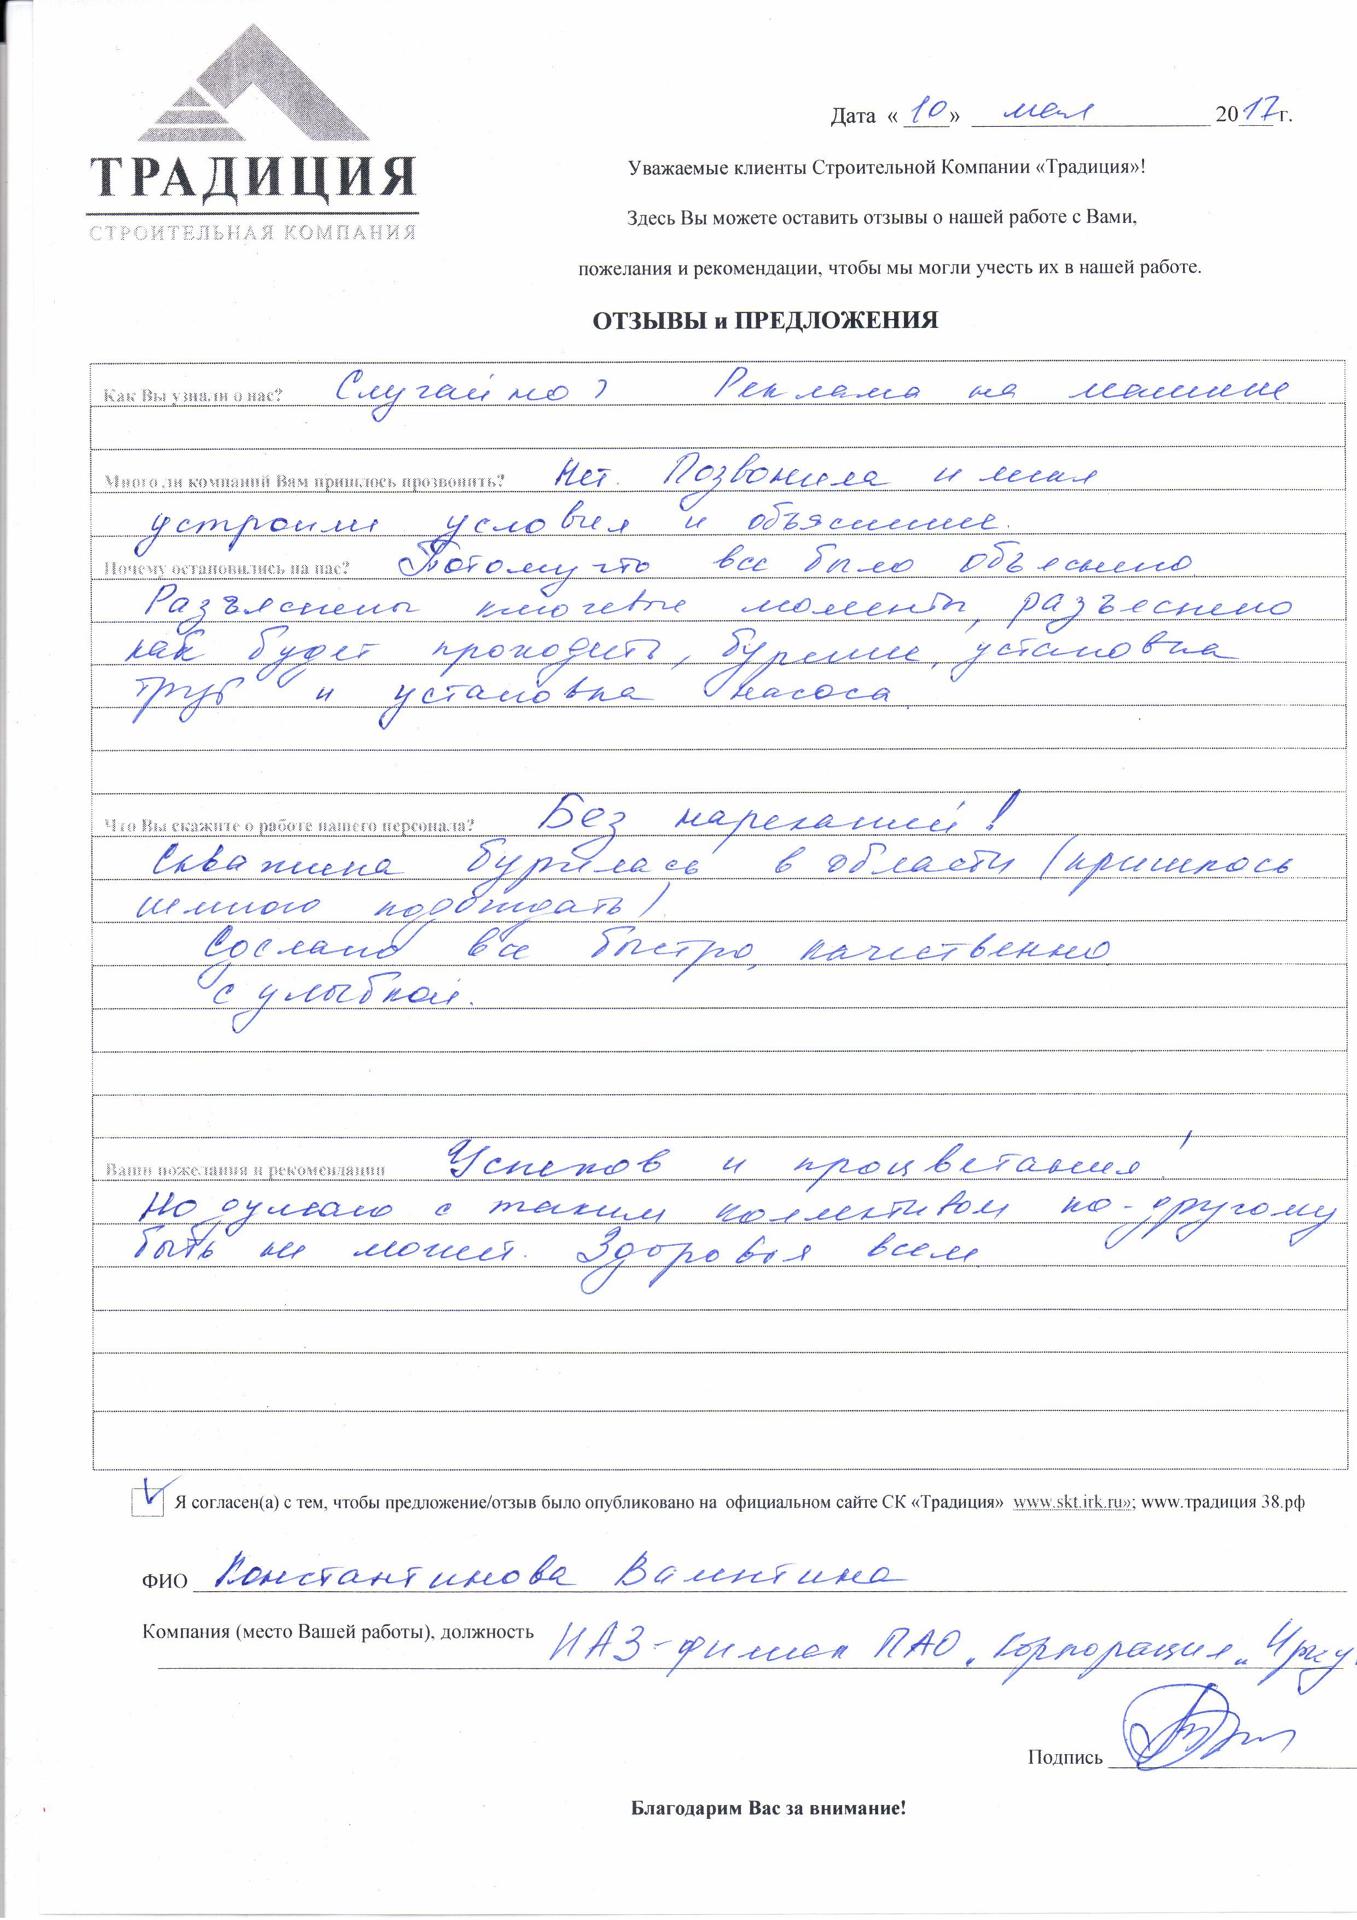 ТРАДИЦИЯ
СТРОИТЕЛЬНАЯ КОМПАНИЯ
Дата « 10 » мая 2017 г.
Уважаемые клиенты Строительной Компании «Традиция»!
Здесь Вы можете оставить отзывы о нашей работе с Вами,
пожелания и рекомендации, чтобы мы могли учесть их в нашей работе.
ОТЗЫВЫ и ПРЕДЛОЖЕНИЯ
Как Вы узнали о нас? Случайно, Реклама на машине
Много ли компаний Вам пришлось прозвонить? Нет. Позвонила и меня
устроили условия и объяснение.
Почему остановились на нас? Потому что все было объяснено
Разъяснены ключевые моменты, разъяснено
как будет проходить, бурение, установка
труб и установка насоса.
Что Вы скажите о работе нашего персонала? Без нареканий!
Скважина бурилась в области (пришлось
немного подождать)
Сделано все быстро, качественно
с улыбкой.
Ваши пожелания и рекомендации Успехов и процветания!
Но думаю с таким коллективом по-другому
быть не может. Здоровья всем.
Я согласен(а) с тем, чтобы предложение/отзыв было опубликовано на официальном сайте СК «Традиция» www.skt.irk.ru»; www.традиция 38.рф
ФИО Константинова Валентина
Компания (место Вашей работы), должность ИАЗ-филиал ПАО „Корпорация „Ирку
Подпись
Благодарим Вас за внимание!